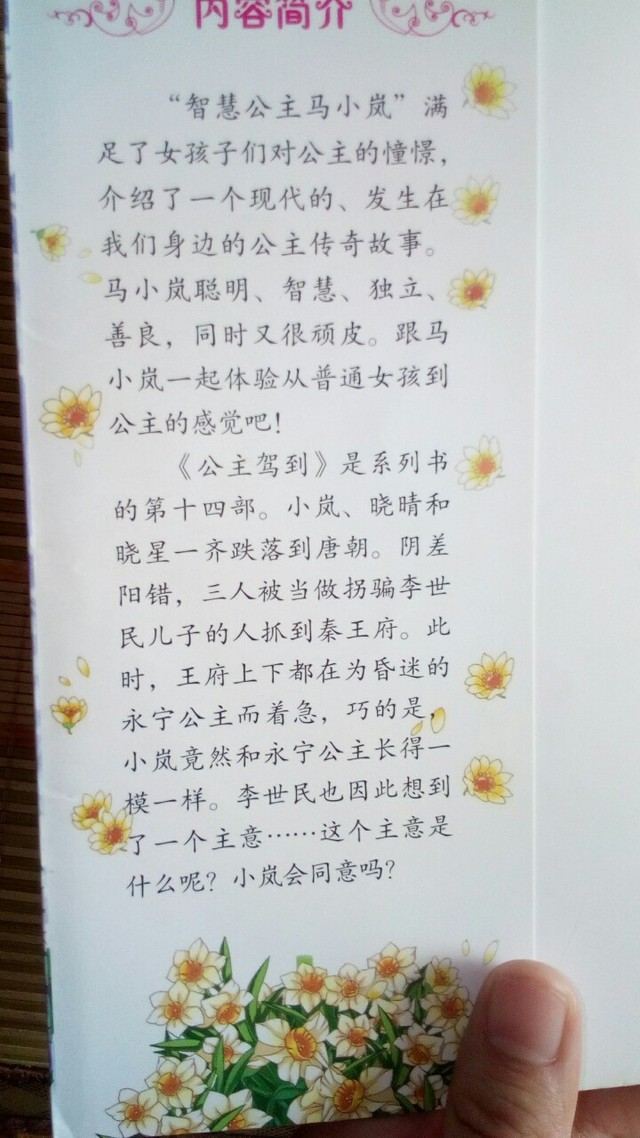 内容简介
“智慧公主马小岚”满
足了女孩子们对公主的憧憬，
介绍了一个现代的、发生在
我们身边的公主传奇故事。
马小岚聪明、智慧、独立、
善良，同时又很顽皮。跟马
小岚一起体验从普通女孩到
公主的感觉吧！
《公主驾到》是系列书
的第十四部。小岚、晓晴和
晓星一齐跌落到唐朝。阴差
阳错，三人被当做拐骗李世
民儿子的人抓到秦王府。此
时，王府上下都在为昏迷的
永宁公主而着急，巧的是，
小岚竟然和永宁公主长得一
模一样。李世民也因此想到
了一个主意……这个主意是
什么呢？小岚会同意吗？